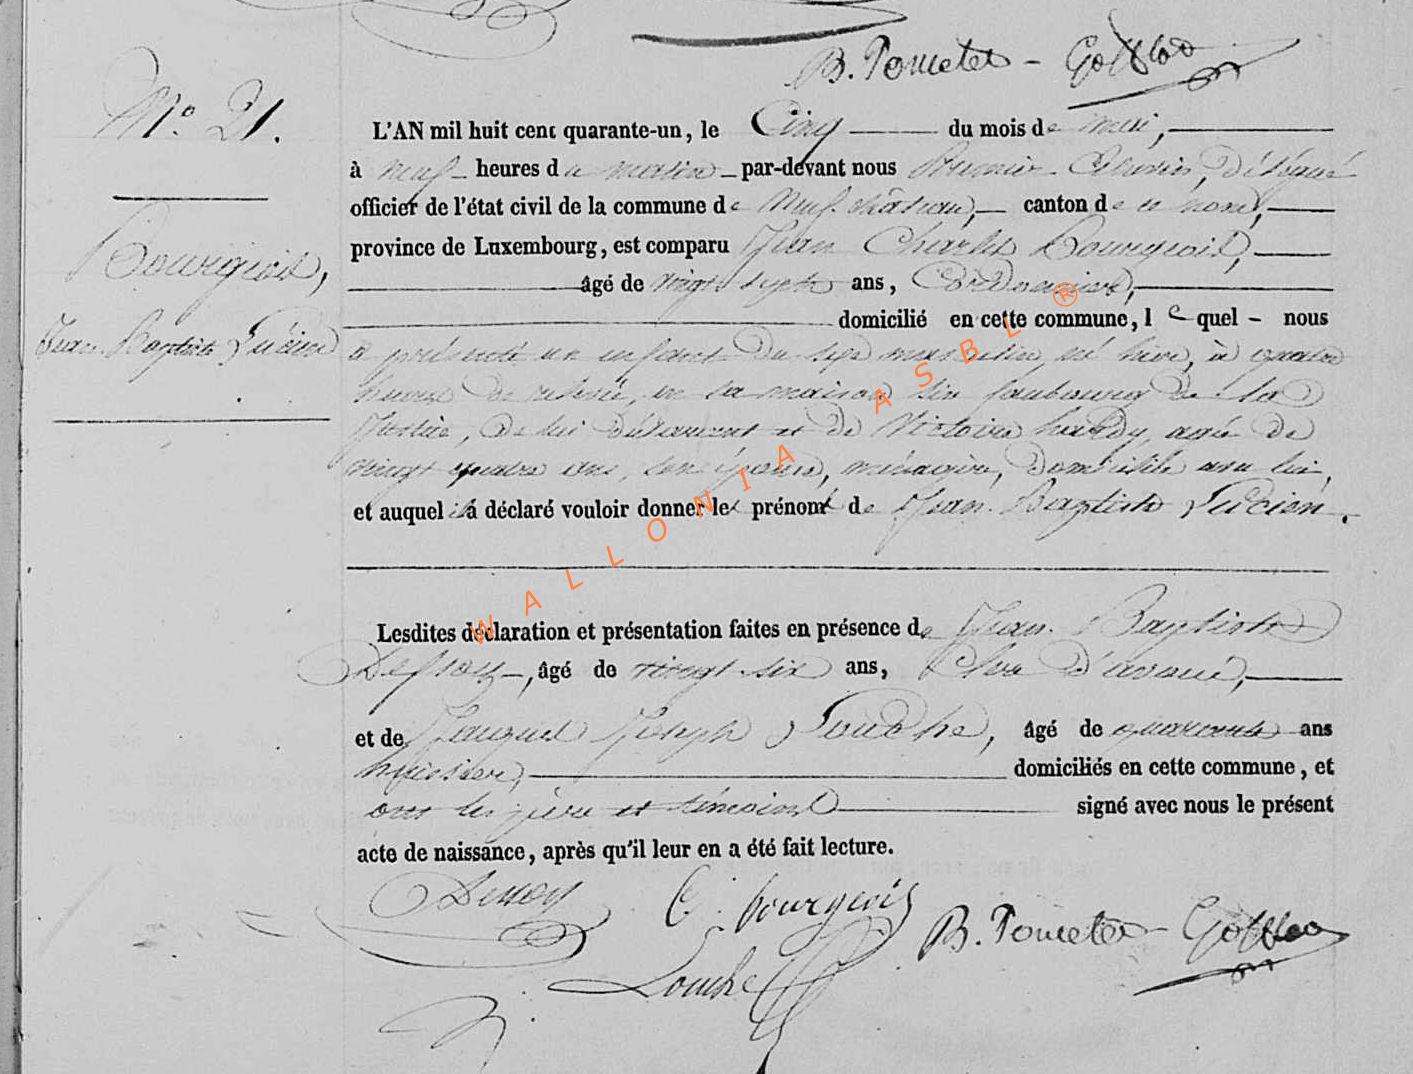 B. Poncelet - Gofflot
N.º 21.
L'AN mil huit cent quarante-un, le Cinq du mois de mai,
à neuf heures du matin par-devant nous Premier Echevin, délégué
officier de l'état civil de la commune de Neufchâteau, canton de ce nom,
Bourgeois,
province de Luxembourg, est comparu Jean Charles Bourgeois,
âgé de vingt sept ans, Cordonnier,
domicilié en cette commune, lequel nous
Jean Baptiste Lucien
a présenté un enfant du sexe masculin né hier, à quatre
heures de relevée, en sa maison sise faubourg de la
Justice, de lui déclarant et de Victoire hardy, agée de
vingt quatre ans, son épouse, ménagère, domiciliée avec lui,
et auquel il a déclaré vouloir donner les prénoms de Jean Baptiste Lucien.
WALLONIA ASBL ®
Lesdites déclaration et présentation faites en présence de Jean Baptiste
âgé de vingt six ans, Clerc d'avoué,
et de Jacques Joseph Louche, âgé de quarante ans
huissier, domiciliés en cette commune, et
ont les père et témoins signé avec nous le présent
acte de naissance, après qu'il leur en a été fait lecture.
C. bourgeois
B. Poncelet - Gofflot
Louche